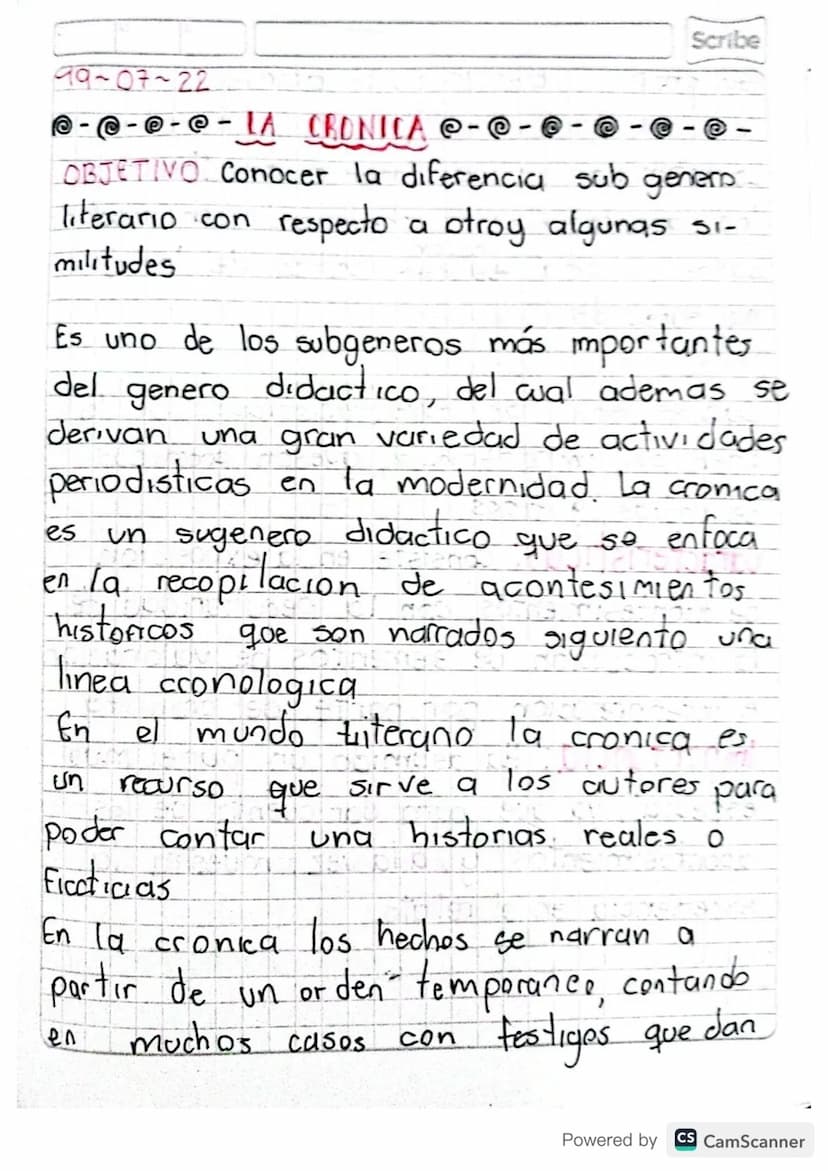 Scribe
19~07~22
@-@-@-@- LA CRONICA @-@-@-@-@-@-
OBJETIVO. Conocer la diferencia sub genero
literario con respecto a otroy algunas si-
militudes
Es uno de los subgeneros más importantes
del genero didactico, del cual ademas se
derivan una gran variedad de actividades
periodisticas en la modernidad. La cronica
es un sugenero didactico que se enfoca
en la recopilacion de acontesimientos
historicos que son narrados siguiento una
linea cronologica
En el mundo literario la cronica es
un recurso que sirve a los autores para
poder contar una historias reales o
ficcticias
En la cronica los hechos se narran a
partir de un orden temporaneo, contando
en muchos casos con testigos que dan
Powered by CS CamScanner